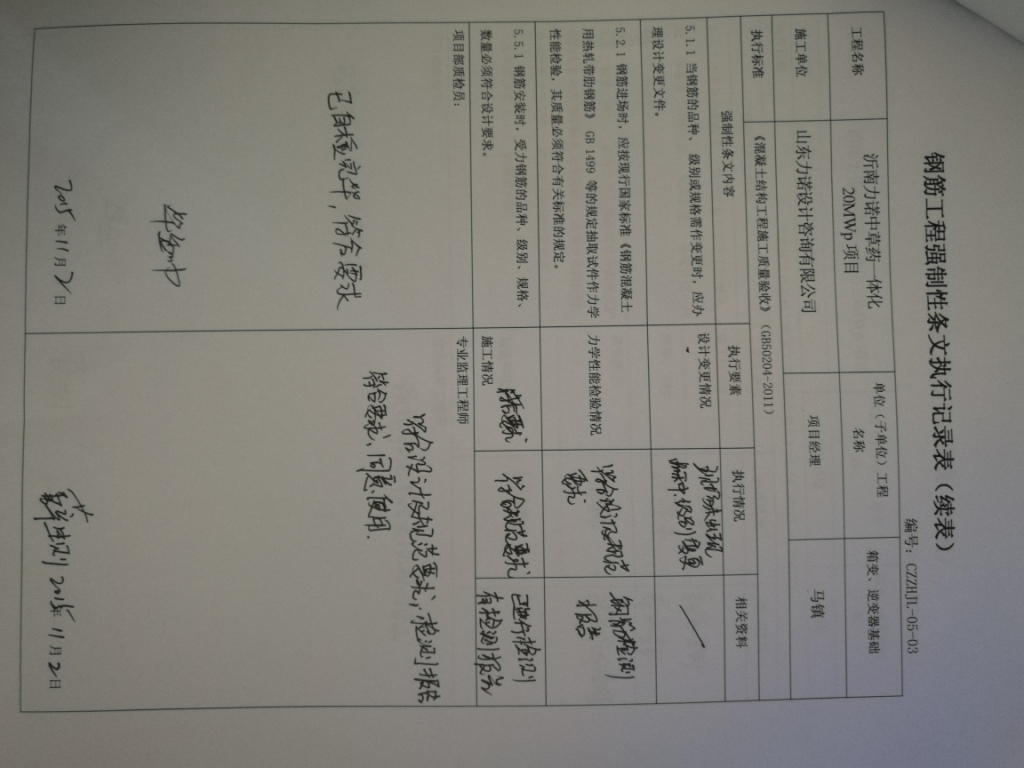 钢筋工程强制性条文执行记录表（续表）
编号：CZZHJL-05-03
工程名称
沂南力诺中草药一体化
20MWp 项目
单位（子单位）工程
名称
箱变、逆变器基础
施工单位
山东力诺设计咨询有限公司
项目经理
马镇
执行标准
《混凝土结构工程施工质量验收》（GB50204-2011）
强制性条文内容
执行要素
执行情况
相关资料
5.1.1 当钢筋的品种、级别或规格需作变更时，应办
理设计变更文件。
设计变更情况
5.2.1 钢筋进场时，应按现行国家标准《钢筋混凝土
用热轧带肋钢筋》GB 1499 等的规定抽取试件作力学
性能检验，其质量必须符合有关标准的规定。
力学性能检验情况
符合设计及规范
要求
钢筋检测
报告
5.5.1 钢筋安装时，受力钢筋的品种、级别、规格、
数量必须符合设计要求。
施工情况
符合规范要求
已进行检测
有检测报告
项目部质检员：
已自检完毕，符合要求
2015年11月2日
专业监理工程师
符合设计及规范要求，检测报告
符合要求、同意使用.
2015年11月2日